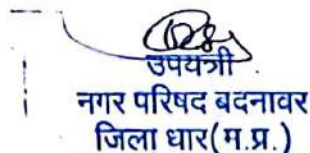 उपयंत्री
नगर परिषद बदनावर
जिला धार(म.प्र.)